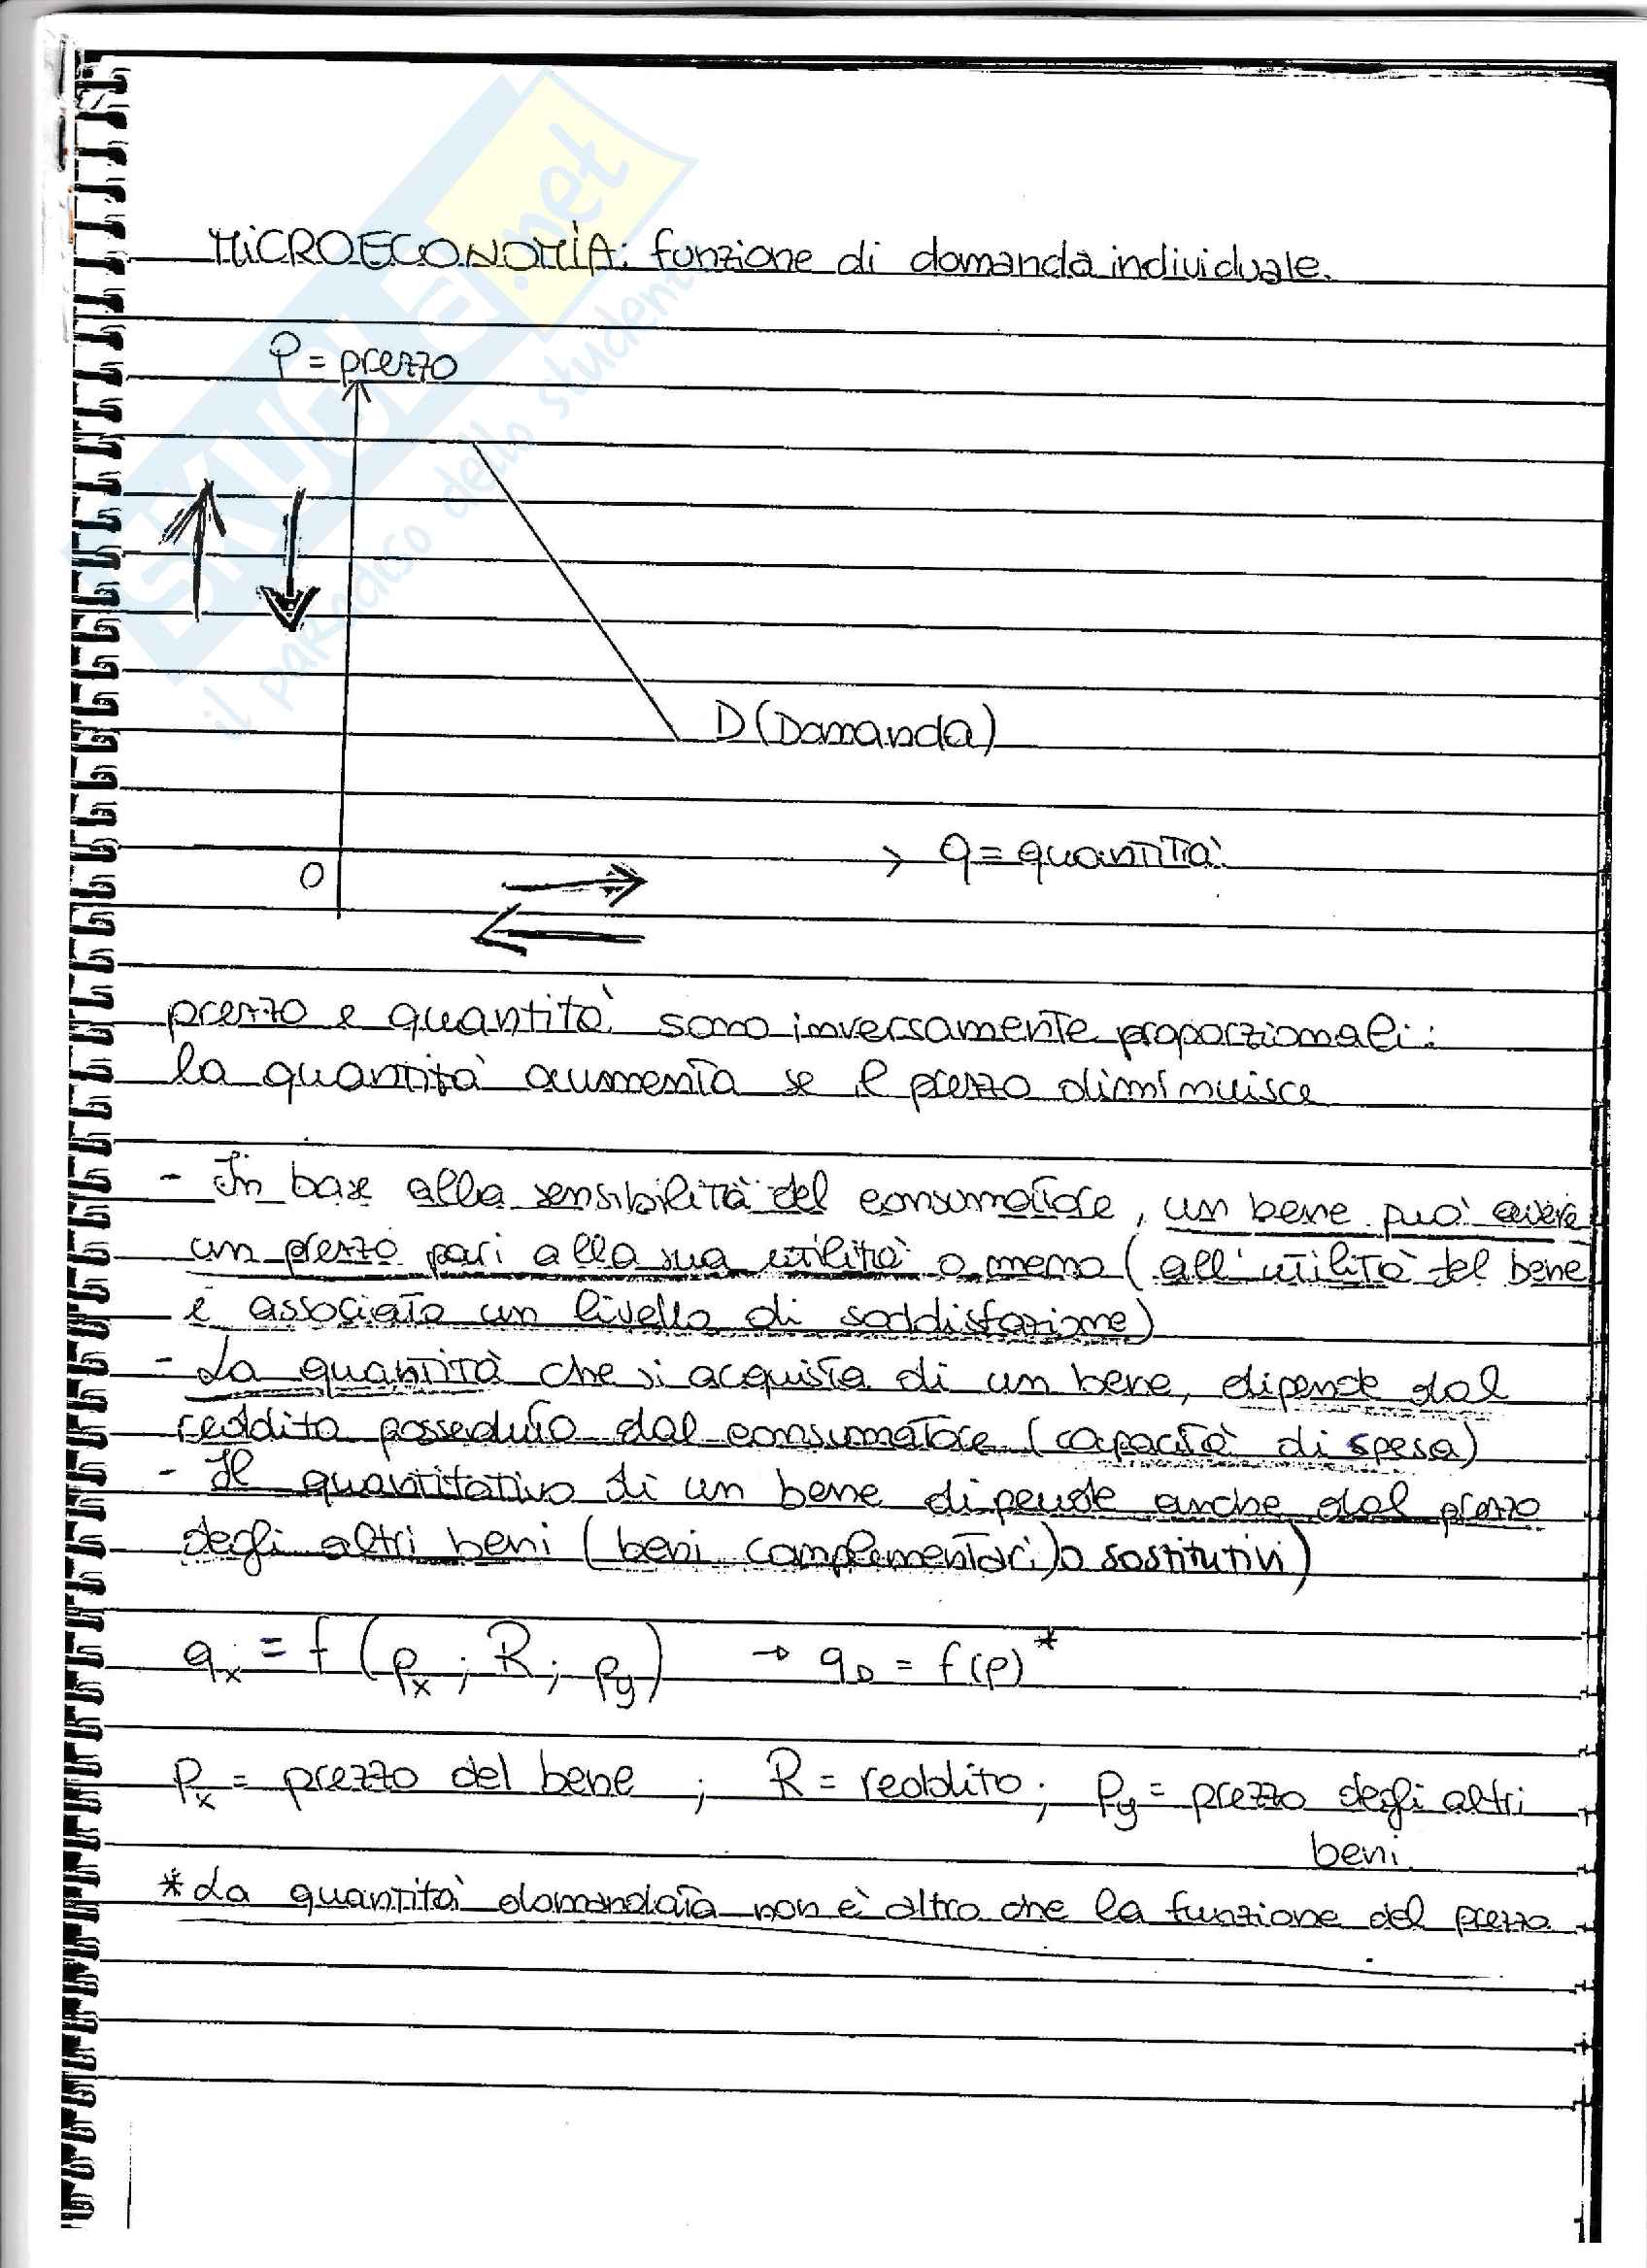 SKUOLA.net
il paradiso dello studente
MICROECONOMIA: funzione di domanda individuale.
P = prezzo
D (Domanda)
q = quantità
O
prezzo e quantità sono inversamente proporzionali:
la quantità aumenta se il prezzo diminuisce
- In base alla sensibilità del consumatore, un bene può avere
un prezzo pari alla sua utilità o meno (all'utilità del bene
è associato un livello di soddisfazione)
- La quantità che si acquista di un bene, dipende dal
reddito posseduto dal consumatore (capacità di spesa)
- Il quantitativo di un bene dipende anche dal prezzo
degli altri beni (beni complementari) o sostitutivi)
qx = f (px ; R ; py) → qD = f(p)*
Px = prezzo del bene ; R = reddito ; Py = prezzo degli altri
beni
* La quantità domandata non è altro che la funzione del prezzo